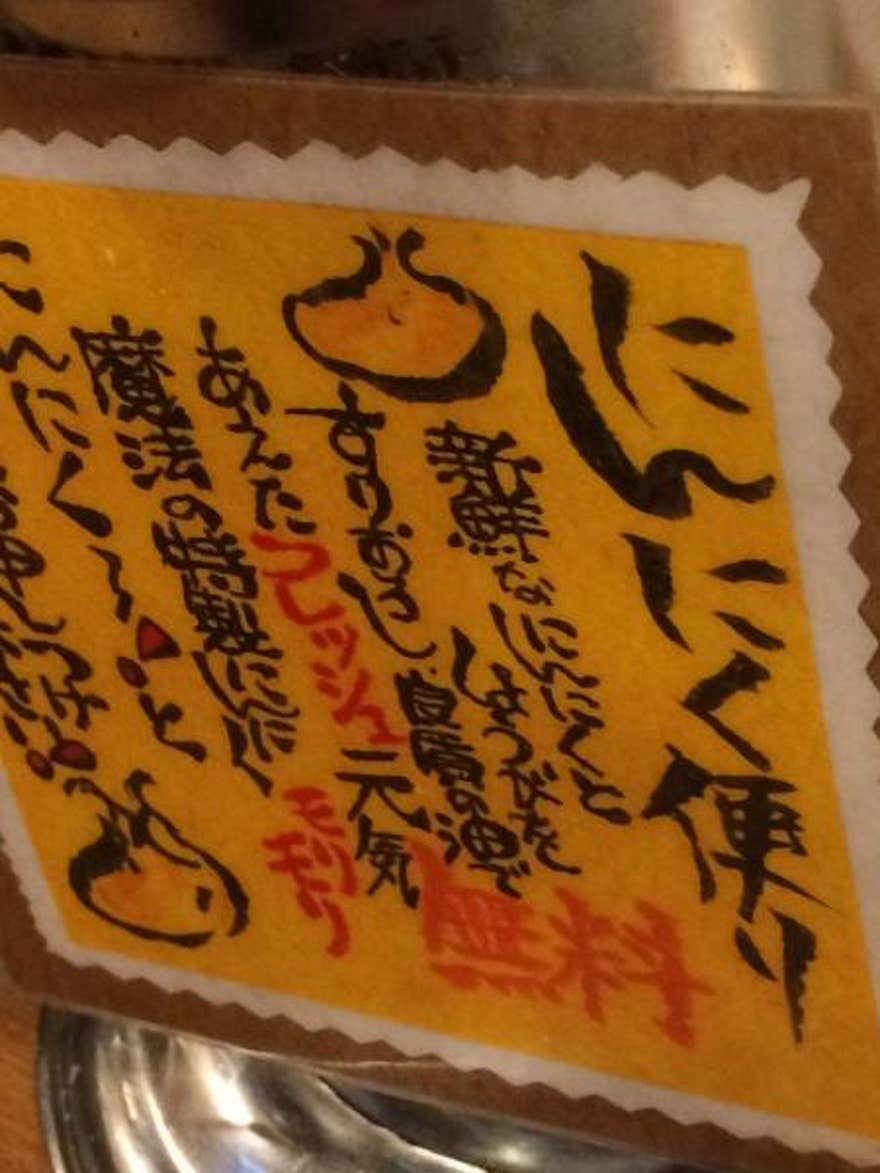 にんにく便り
無料
新鮮なにんにくと
しょうがを
すりおろし自慢の油で
あえたフレッシュ元気
モリモリ
魔法の特製にんにく
にんにく〜!と